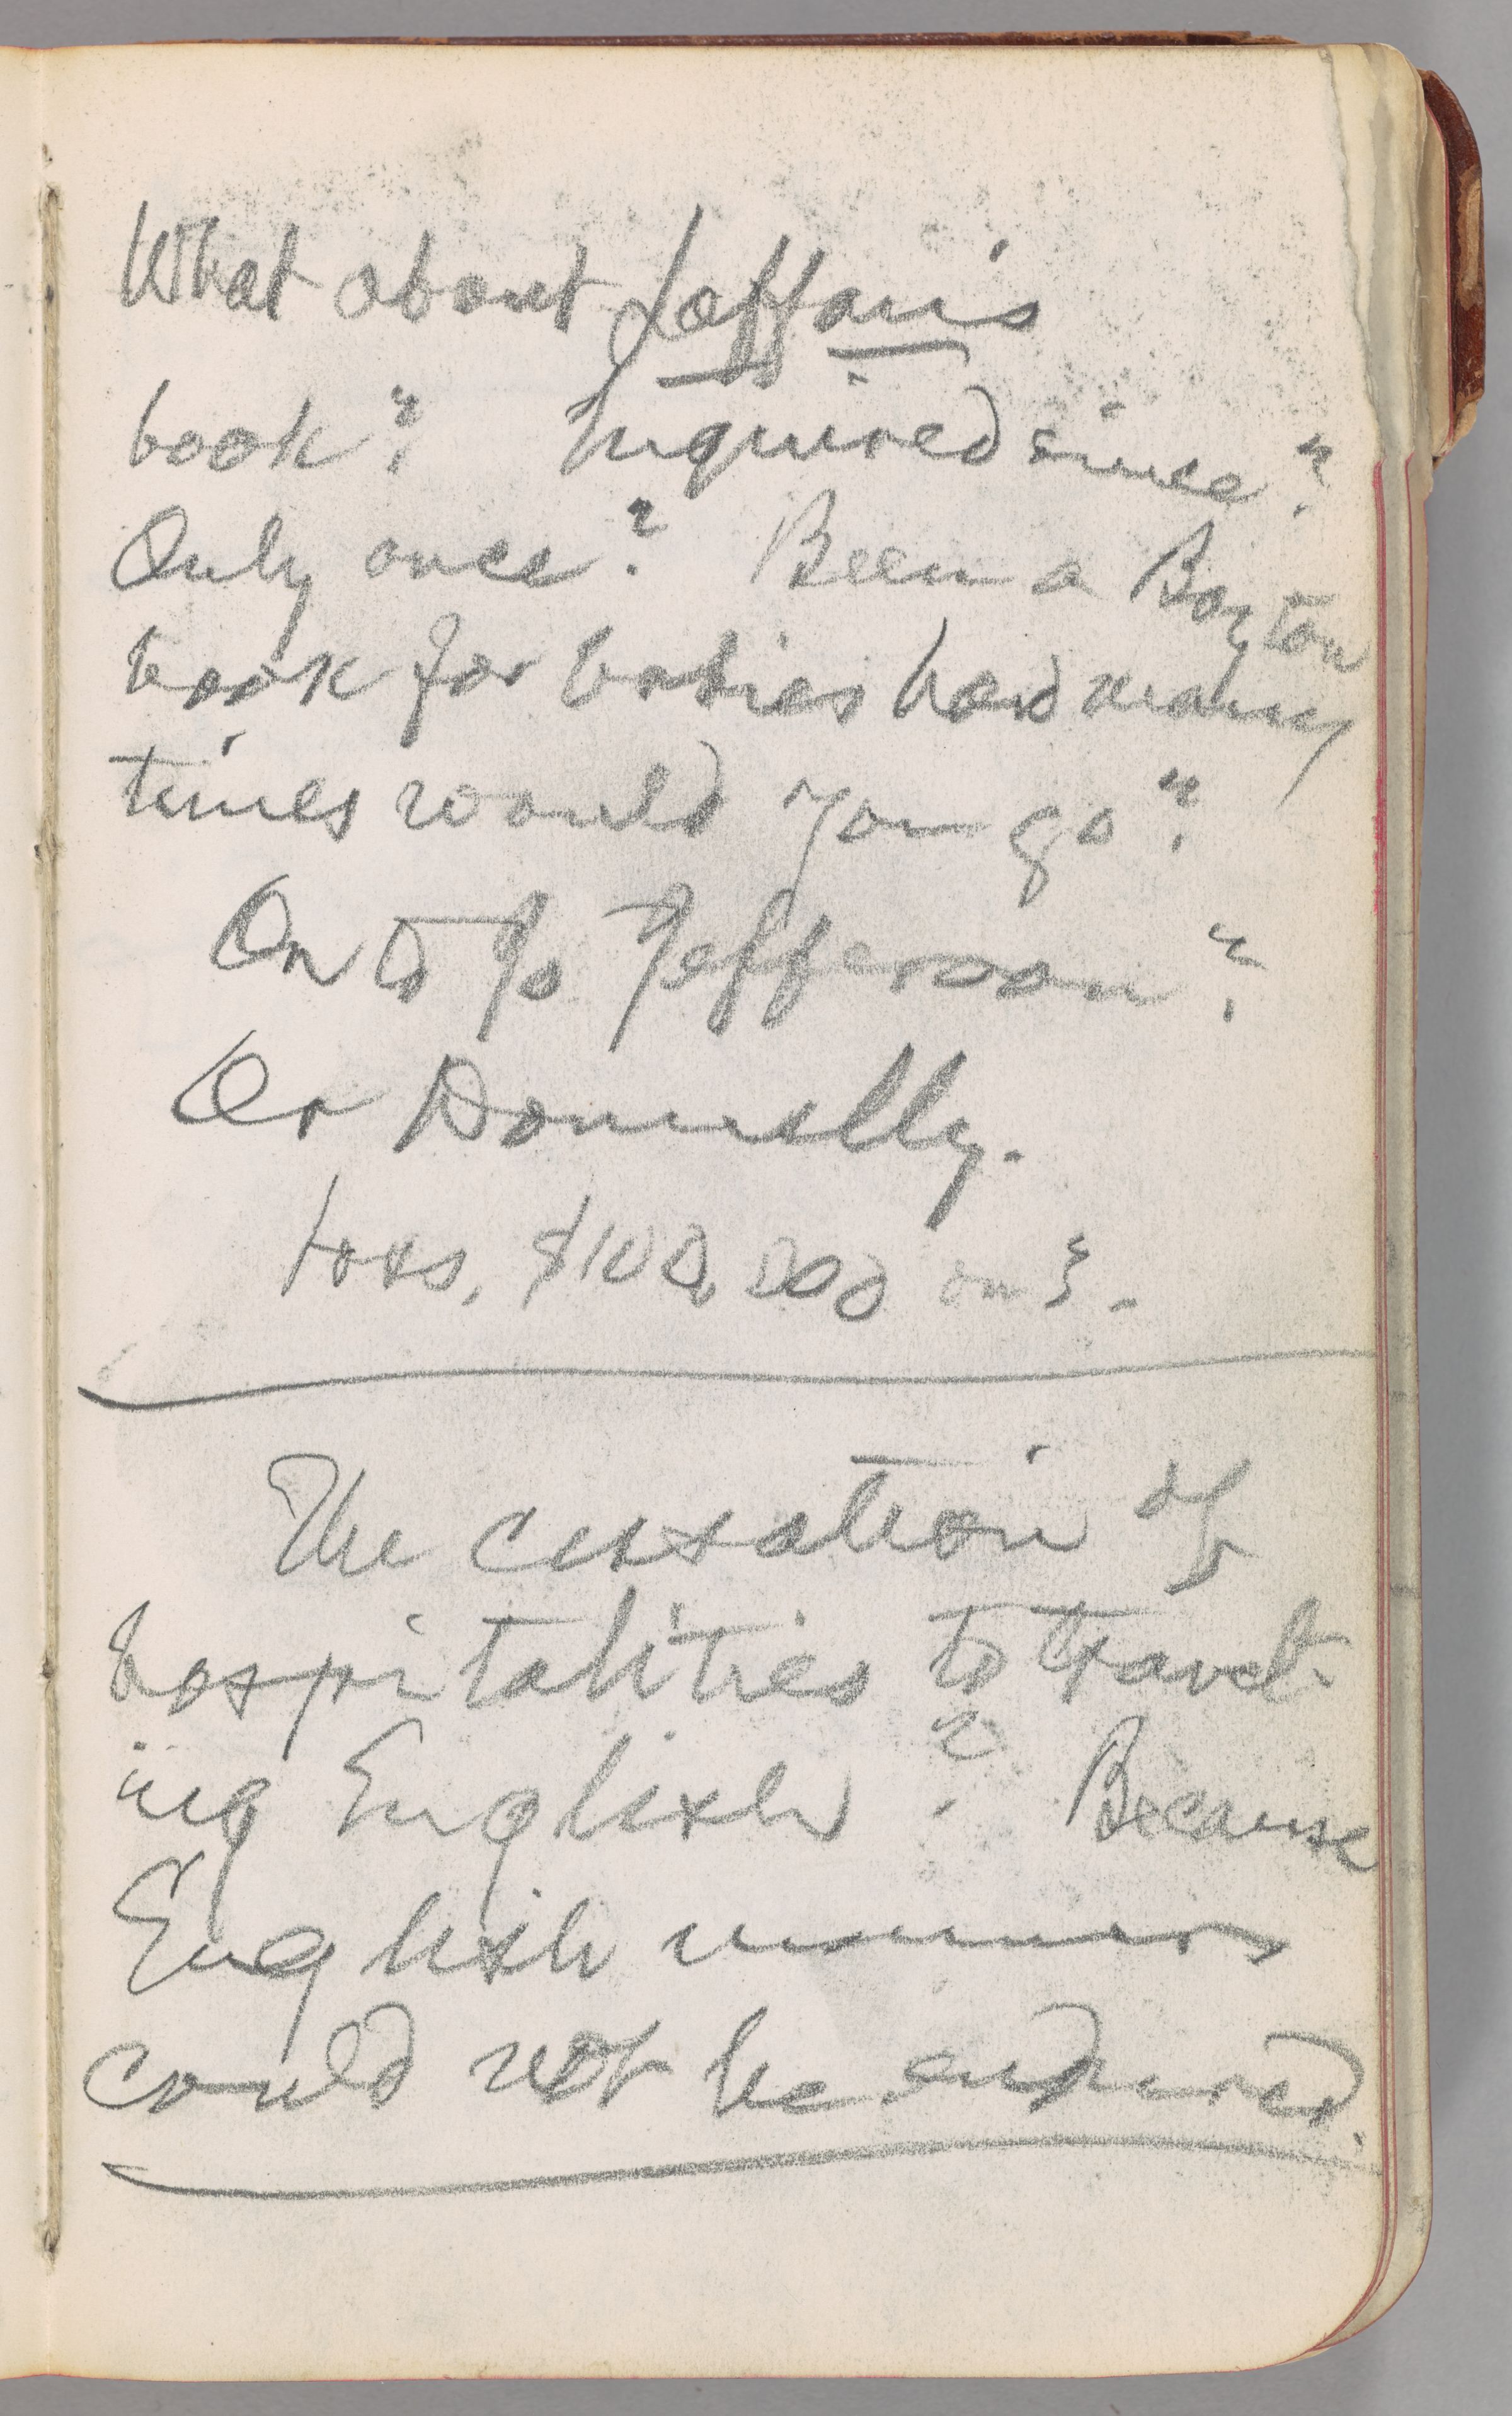 What about Jaffair's
book? Inquired since?
Only once? Been a Boyton
book for babies how many
times would you go?
On to Jo Jefferson?
Or Donnelly.
Loss, $100,000 on 3.
The cessation of
hospitalities to travel-
ing English? Because
English manners
could not be endured.